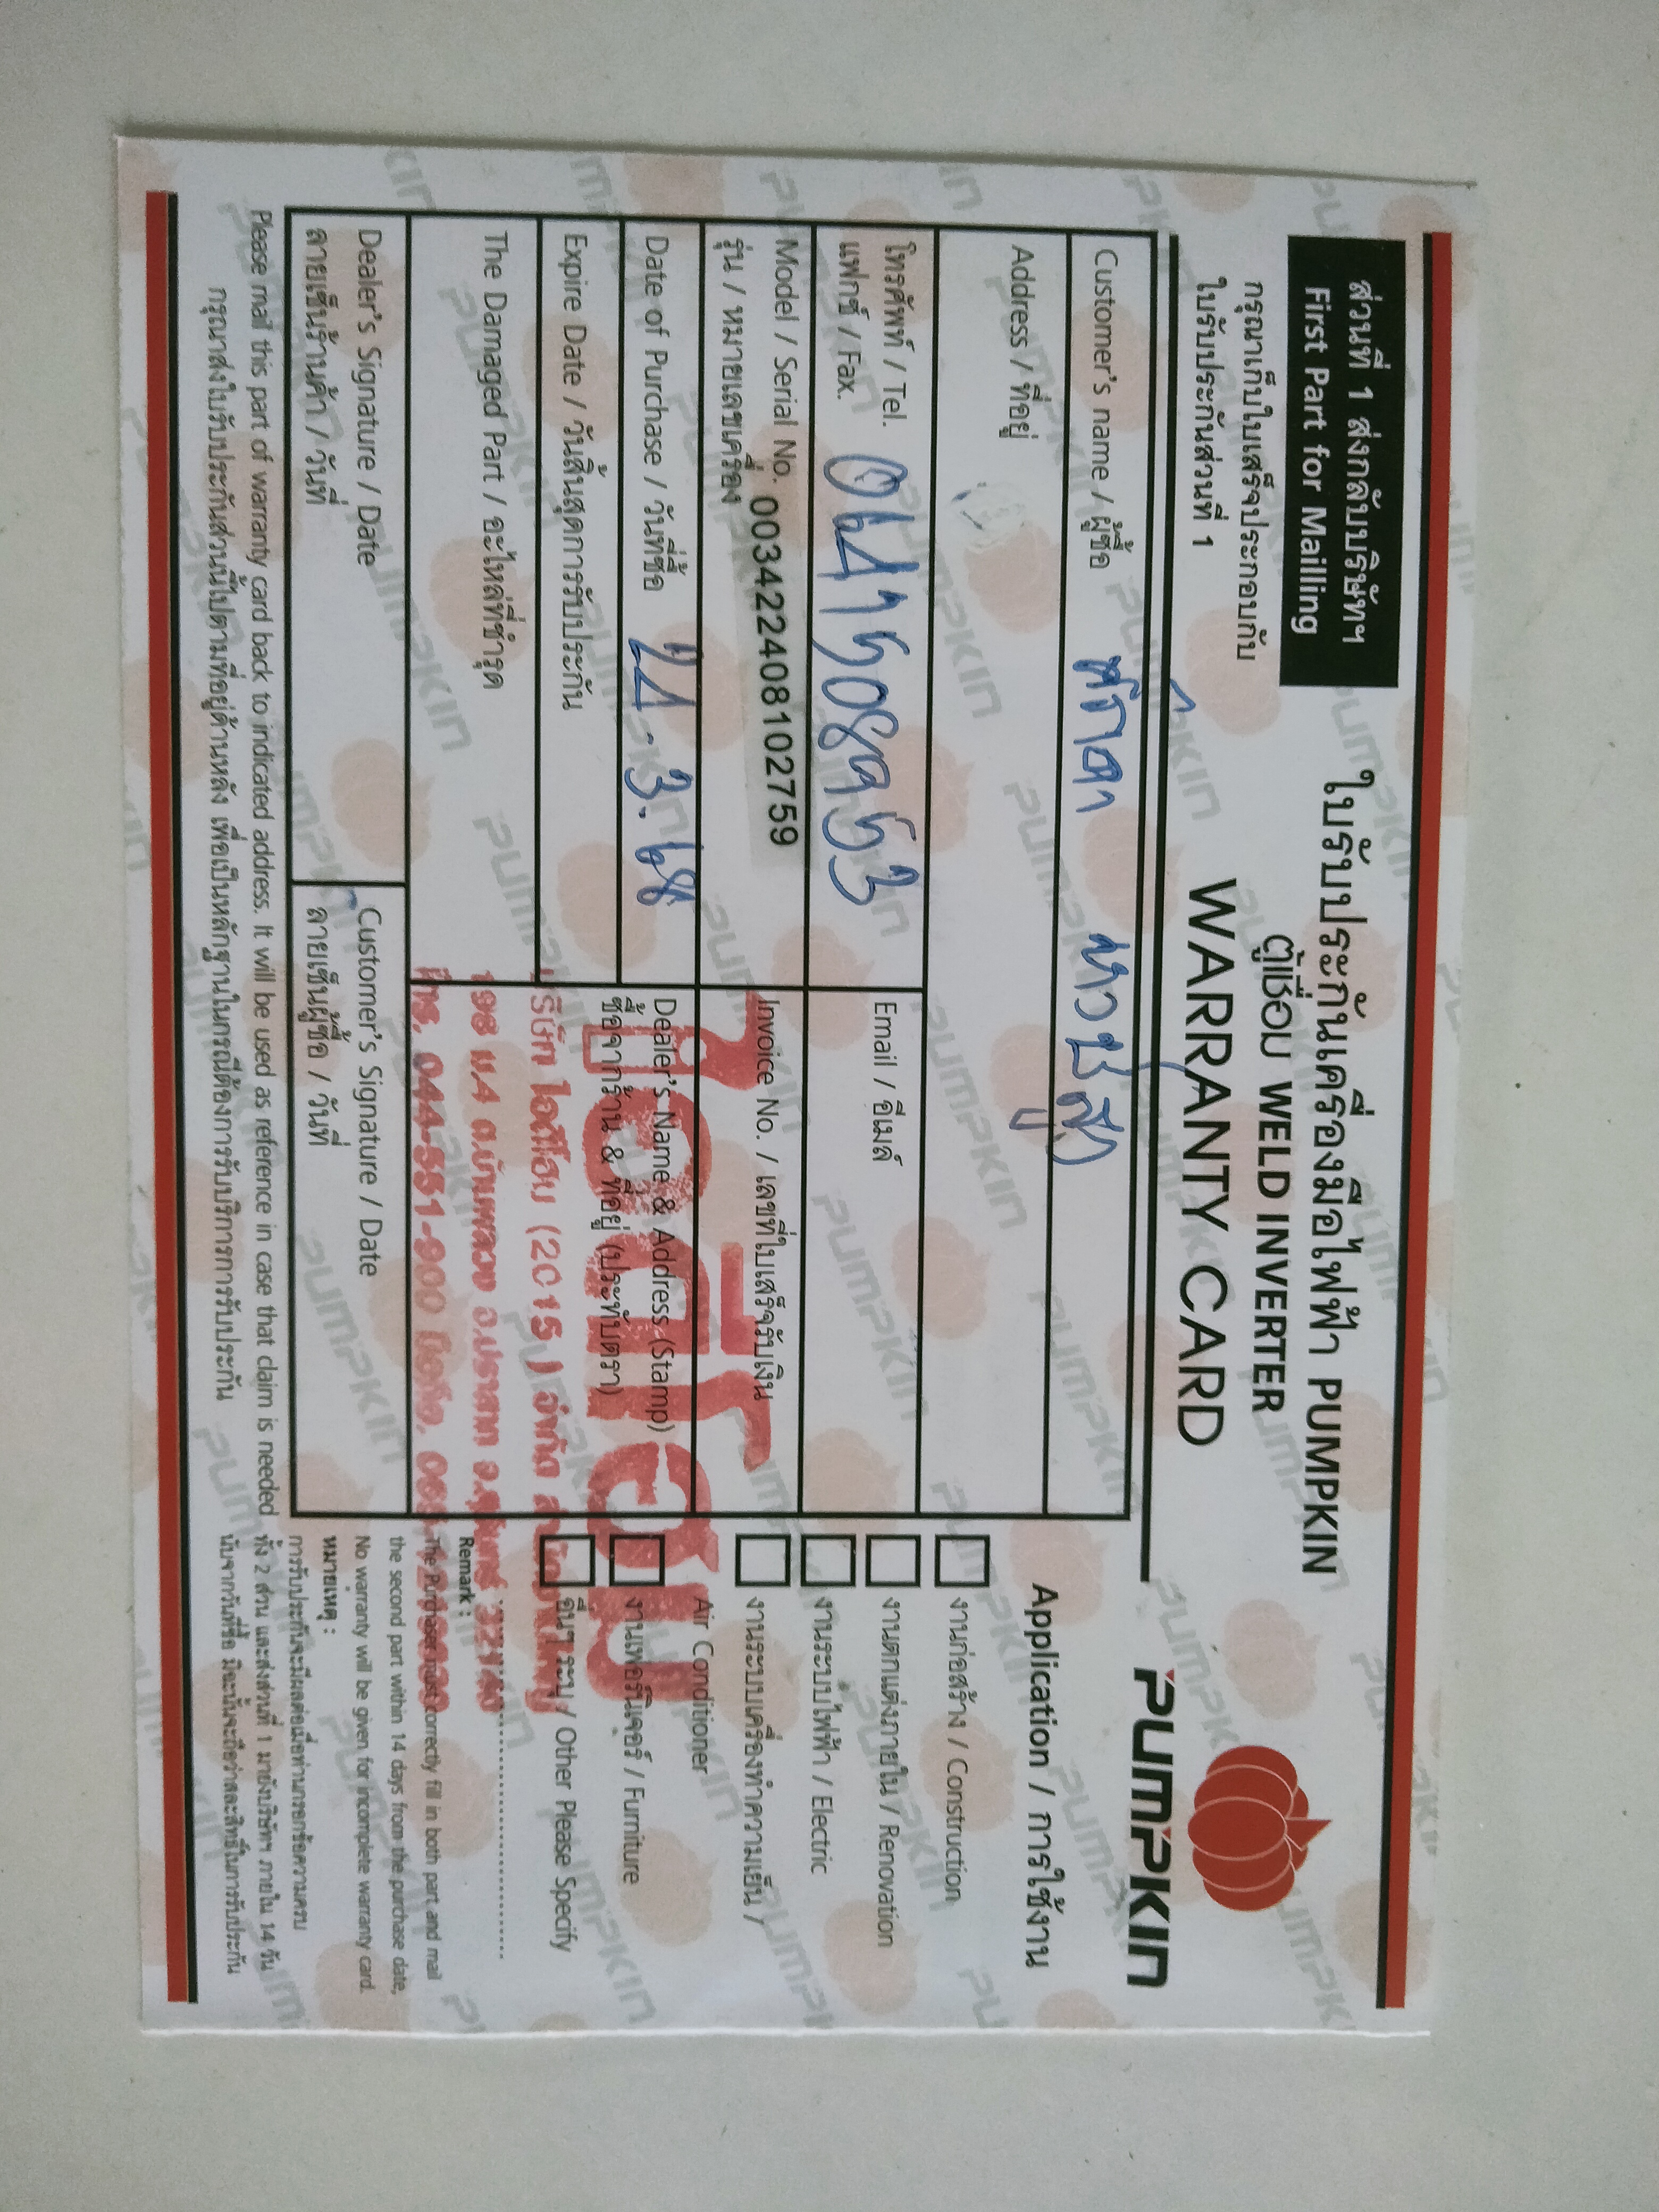 ส่วนที่ 1 ส่งกลับบริษัทฯ
First Part for Mailling
กรุณาเก็บใบเสร็จประกอบกับ
ใบรับประกันส่วนที่ 1
ใบรับประกันเครื่องมือไฟฟ้า PUMPKIN
ตู้เชื่อม WELD INVERTER
WARRANTY CARD
PUMPKIN
Customer's name / ผู้ซื้อ
Address / ที่อยู่
โทรศัพท์ / Tel.
แฟกซ์ / Fax. 0641508953
Email / อีเมล์
Model / Serial No. 003422408102759
รุ่น / หมายเลขเครื่อง
Invoice No. / เลขที่ใบเสร็จรับเงิน
Date of Purchase / วันที่ซื้อ 24.3.68
Dealer's Name & Address (Stamp)
ซื้อจากร้าน & ที่อยู่ (ประทับตรา)
Expire Date / วันสิ้นสุดการรับประกัน
The Damaged Part / อะไหล่ที่ชำรุด
(2015) จำกัด
ม.4 ต.บ้านพลวง อ.ปราสาท
โทร. 044-551-900
Dealer's Signature / Date
ลายเซ็นร้านค้า / วันที่
Customer's Signature / Date
ลายเซ็นผู้ซื้อ / วันที่
Please mail this part of warranty card back to indicated address. It will be used as reference in case that claim is needed
กรุณาส่งใบรับประกันส่วนนี้ไปตามที่อยู่ด้านหลัง เพื่อเป็นหลักฐานในกรณีต้องการรับบริการการรับประกัน
Application / การใช้งาน
งานก่อสร้าง / Construction
งานตกแต่งภายใน / Renovation
งานระบบไฟฟ้า / Electric
งานระบบเครื่องทำความเย็น /
Air Conditioner
งานเฟอร์นิเจอร์ / Furniture
อื่นๆ ระบุ / Other Please Specify
Remark :
The Purchaser must correctly fill in both part and mail
the second part within 14 days from the purchase date,
No warranty will be given for incomplete warranty card.
หมายเหตุ :
การรับประกันจะมีผลต่อเมื่อท่านกรอกข้อความครบ
ทั้ง 2 ส่วน และส่งส่วนที่ 1 มายังบริษัทฯ ภายใน 14 วัน
นับจากวันที่ซื้อ มิฉะนั้นจะถือว่าสละสิทธิ์ในการรับประกัน